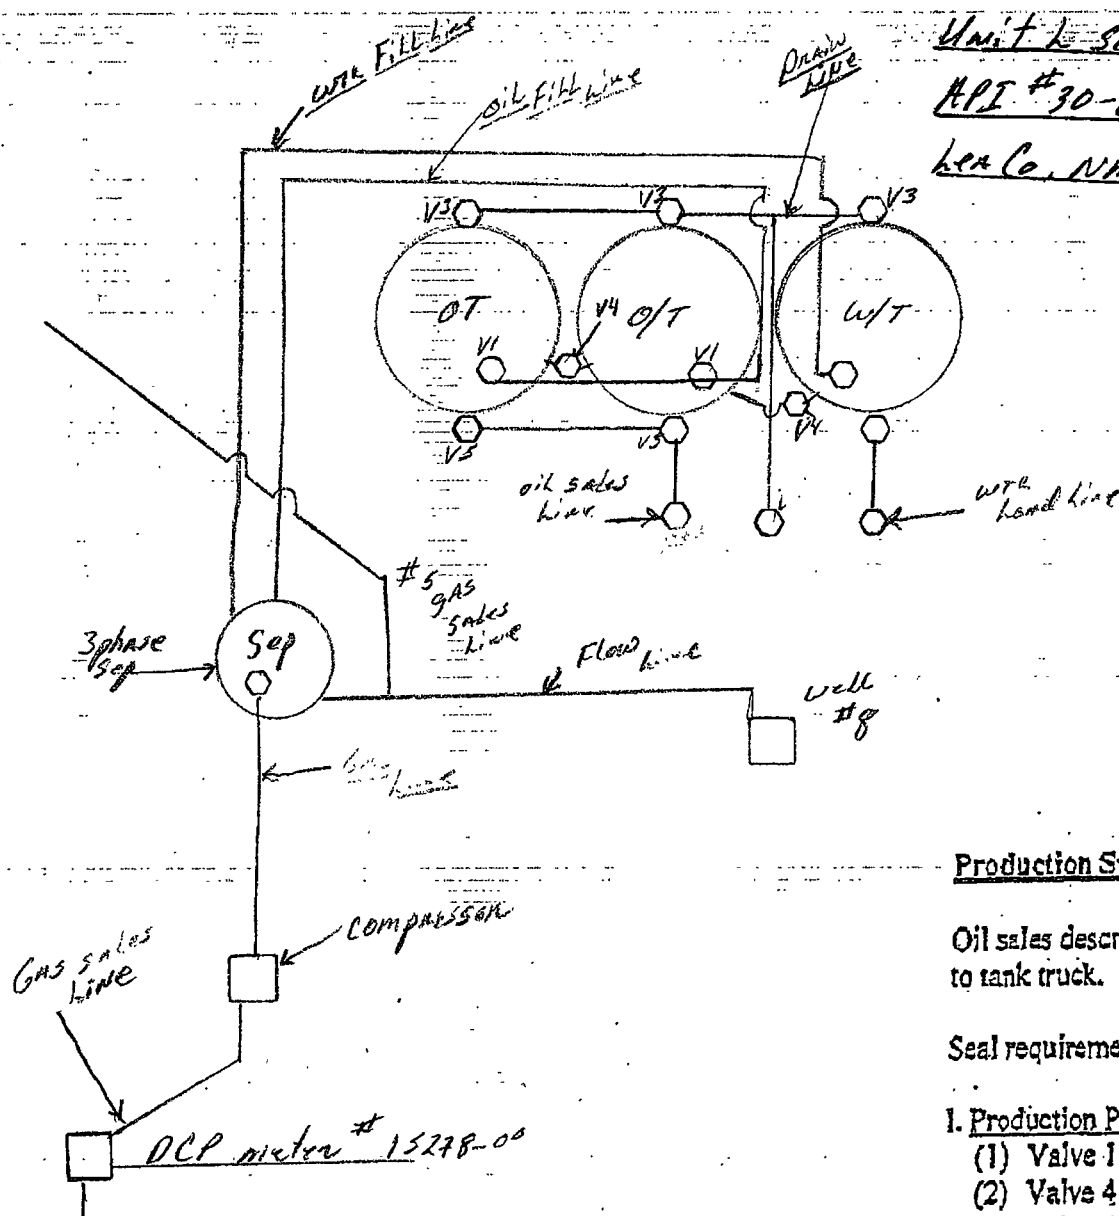 wtr Fill Line
Oil Fill Line
Drain
Line
Unit L
API #30-
Lea Co, NM
V3
V3
V3
OT
V4
O/T
W/T
V1
V1
V4
V5
V5
oil sales
Line
wtr
Load Line
#5
gas
sales
Line
3phase
Sep
Sep
Flow Line
well
#8
Gas
Line
Compressor
Gas sales
Line
DCP meter # 15278-00
Production S
Oil sales descr
to tank truck.
Seal requireme
1. Production P
(1) Valve 1
(2) Valve 4